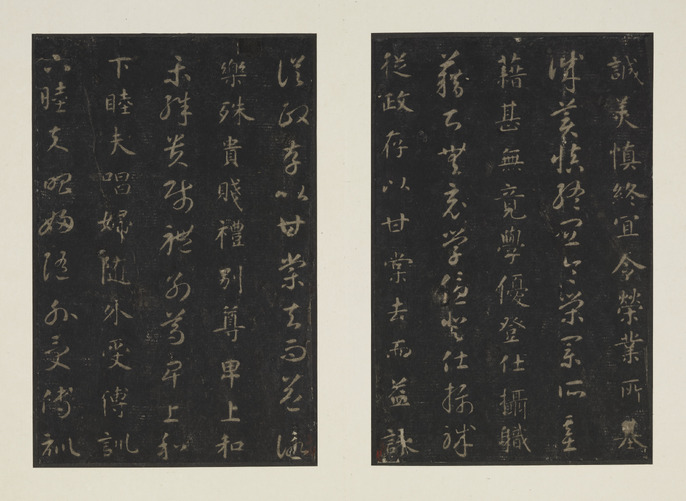 誠美慎終宜令榮業所基
誠美慎終宜令榮業所基
籍甚無竟學優登仕攝職
籍甚無竟學優登仕攝職
從政存以甘棠去而益詠
從政存以甘棠去而益詠
樂殊貴賤禮別尊卑上和
樂殊貴賤禮別尊卑上和
下睦夫唱婦随外受傅訓
下睦夫唱婦随外受傅訓